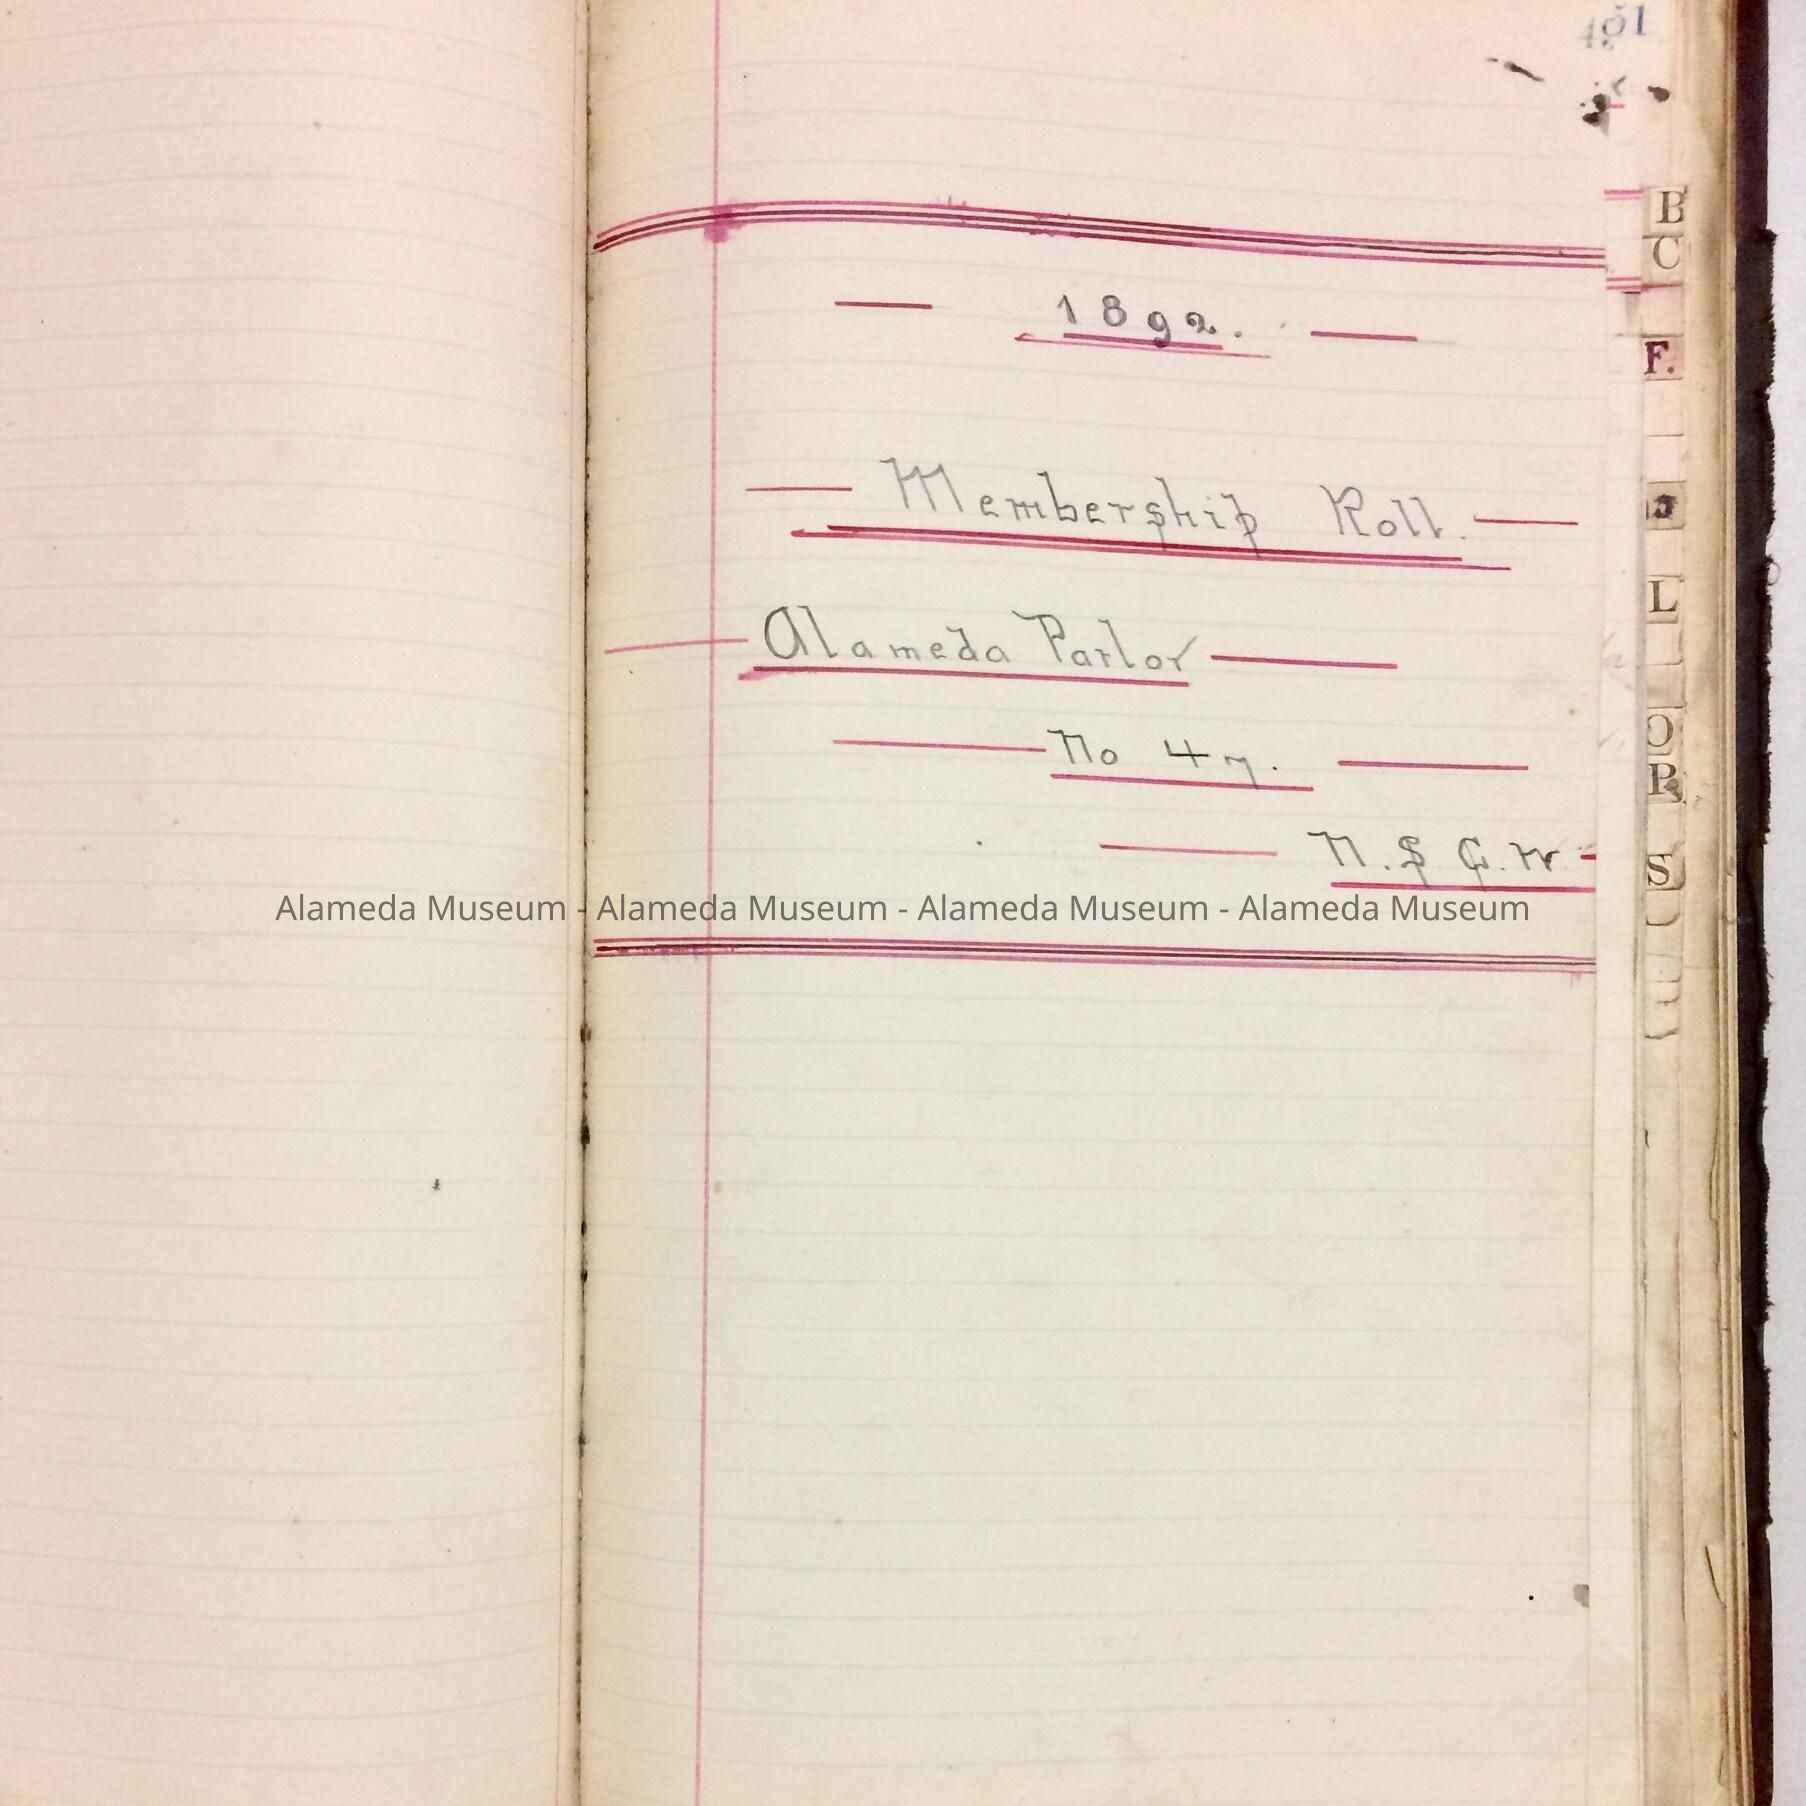 1892.
Membership Roll.
Alameda Parlor
No 47.
N.S G.W.
Alameda Museum - Alameda Museum - Alameda Museum - Alameda Museum
B
C
F.
L
O
P
S